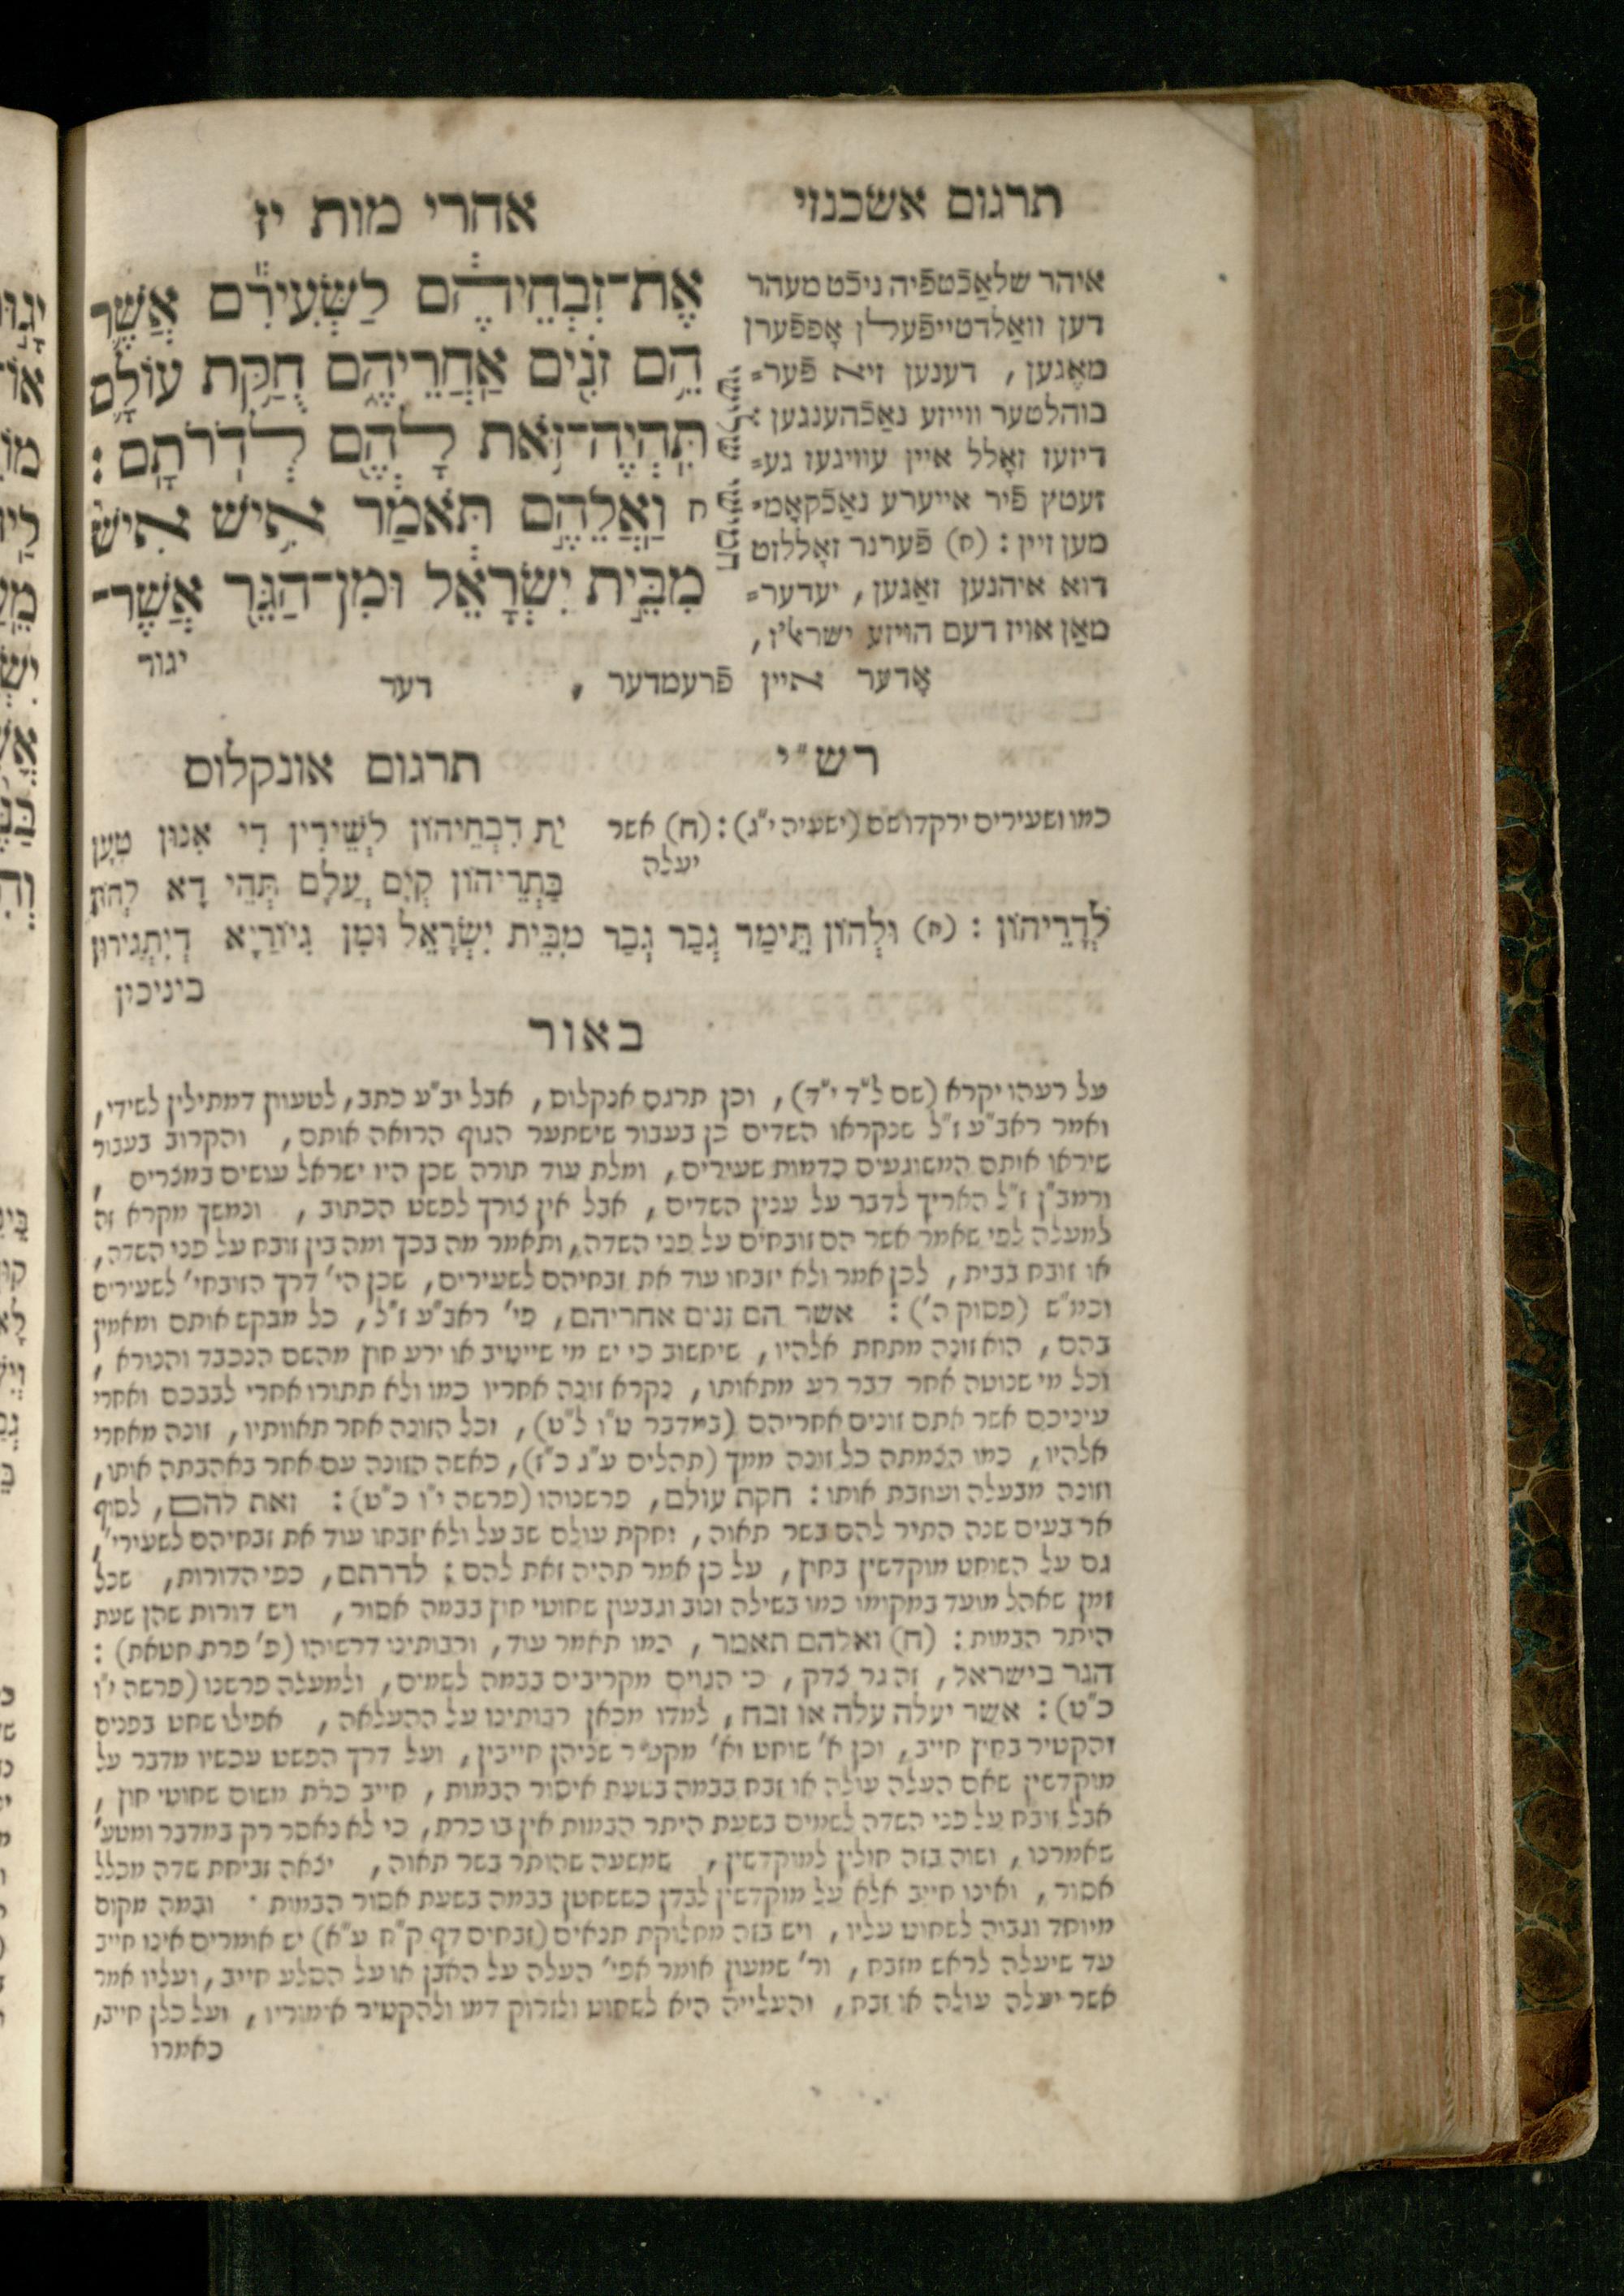 תרגום אשכנזי
אחרי מות יז
אֶת־זִבְחֵיהֶם לַשְּׂעִירִם אֲשֶׁר
הֵם זֹנִים אַחֲרֵיהֶם חֻקַּת עוֹלָם
תִּהְיֶה־זֹּאת לָהֶם לְדֹרֹתָם :
ח וַאֲלֵהֶם תֹּאמַר אִישׁ אִישׁ
מִבֵּית יִשְׂרָאֵל וּמִן־הַגֵּר אֲשֶׁר־
יגור
שלישי
חמישי
איהר שלאַכֿטפֿיה ניכֿט מעהר
דען וואַלדטייפֿעלן אָפפֿערן
מאֶגען, דענען זיא פֿער=
בוהלטער ווייזע נאַכֿהענגען :
דיזעז זאָלל איין עוויגעז גע=
זעטץ פֿיר אייערע נאַכֿקאָמ=
מען זיין : (ח) פֿערנר זאָללזט
דוא איהנען זאַגען, יעדער=
מאַן אויז דעם הויזע ישראל'ז,
אָדער איין פֿרעמדער, דער
רש"י
כמו ושעירים ירקדו שם (ישעיה י"ג) : (ח) אשר
יעלה
תרגום אונקלוס
יַת דִּבְחֵיהוֹן לְשֵׁידִין דִּי אִנּוּן טָעַן
בַּתְרֵיהוֹן קְיָם עֲלָם תְּהֵי דָא לְהוֹן
לְדָרֵיהוֹן : (ח) וּלְהוֹן תֵּימַר גְּבַר גְּבַר מִבֵּית יִשְׂרָאֵל וּמִן גִּיּוֹרַיָּא דְיִתְגַּיְּרוּן
ביניכון
באור
על רעהו יקרא (שם ל"ד י"ד), וכן תרגם אנקלוס, אבל יב"ע כתב, לטעוון דמתילין לשידי,
ואמר ראב"ע ז"ל שנקראו השדים כן בעבור שישתער הגוף הרואה אותם, והקרוב בעבור
שיראו אותם המשוגעים כדמות שעירים, ומלת עוד תורה שכן היו ישראל עושים במצרים,
ורמב"ן ז"ל האריך לדבר על ענין השדים, אבל אין צורך לפשט הכתוב, ונמשך מקרא זה
למעלה לפי שאמר אשר הם זובחים על פני השדה, ותאמר מה בכך ומה בין זובח על פני השדה,
או זובח בבית, לכן אמר ולא יזבחו עוד את זבחיהם לשעירים, שכן הי' דרך הזובחי' לשעירים
וכמ"ש (פסוק ה') : אשר הם זנים אחריהם, פי' ראב"ע ז"ל, כל מבקש אותם ומאמין
בהם, הוא זונה מתחת אלהיו, שיחשוב כי יש מי שייטיב או ירע חוץ מהשם הנכבד והנורא,
וכל מי שנוטה אחר דבר רע מתאותו, נקרא זונה אחריו כמו ולא תתורו אחרי לבבכם ואחרי
עיניכם אשר אתם זונים אחריהם (במדבר ט"ו ל"ט), וכל הזונה אחר תאוותיו, זונה מאחרי
אלהיו, כמו הצמתה כל זונה ממך (תהלים ע"ג כ"ז), כאשה הזונה עם אחר באהבתה אותו,
וזונה מבעלה ועוזבת אותו : חקת עולם, פרשנוהו (פרשה י"ו כ"ט) : זאת להם, לסוף
ארבעים שנה התיר להם בשר תאוה, וחקת עולם שב על ולא יזבחו עוד את זבחיהם לשעירי',
גם על השוחט מוקדשין בחוץ, על כן אמר תהיה זאת להם : לדרתם, כפי הדורות, שכל
זמן שאהל מועד במקומו כמו בשילה ונוב וגבעון שחוטי חוץ בבמה אסור, ויש דורות שהן שעת
היתר הבמות : (ח) ואלהם תאמר, כמו תאמר עוד, ורבותינו דרשוהו (פ' פרת חטאת) :
הגר בישראל, זה גר צדק, כי הגוים מקריבים בבמה לשמים, ולמעלה פרשנו (פרשה י"ו
כ"ט) : אשר יעלה עלה או זבח, למדו מכאן רבותינו על ההעלאה, אפילו שחט בפנים
והקטיר בחוץ חייב, וכן א' שוחט וא' מקטיר שניהן חייבין, ועל דרך הפשט עכשיו מדבר על
מוקדשין שאם העלה עולה או זבח בבמה בשעת איסור הבמות, חייב כרת משום שחוטי חוץ,
אבל זובח על פני השדה לשמים בשעת היתר הבמות אין בו כרת, כי לא נאסר רק במדבר ומטע'
שאמרנו, ושוה בזה חולין למוקדשין, שמשעה שהותר בשר תאוה, יצאה זביחת שדה מכלל
אסור, ואינו חייב אלא על מוקדשין לבדן כששחטן בבמה בשעת אסור הבמות · ובמה מקום
מיוחד וגבוה לשחוט עליו, ויש בזה מחלוקת תנאים (זבחים דף ק"ח ע"א) יש אומרים אינו חייב
עד שיעלה לראש מזבח, ור' שמעון אומר אפי' העלה על האבן או על הסלע חייב, ועליו אמר
אשר יעלה עולה או זבח, והעלייה היא לשחוט ולזרוק דמו ולהקטיר אימוריו, ועל כלן חייב,
כאמרו